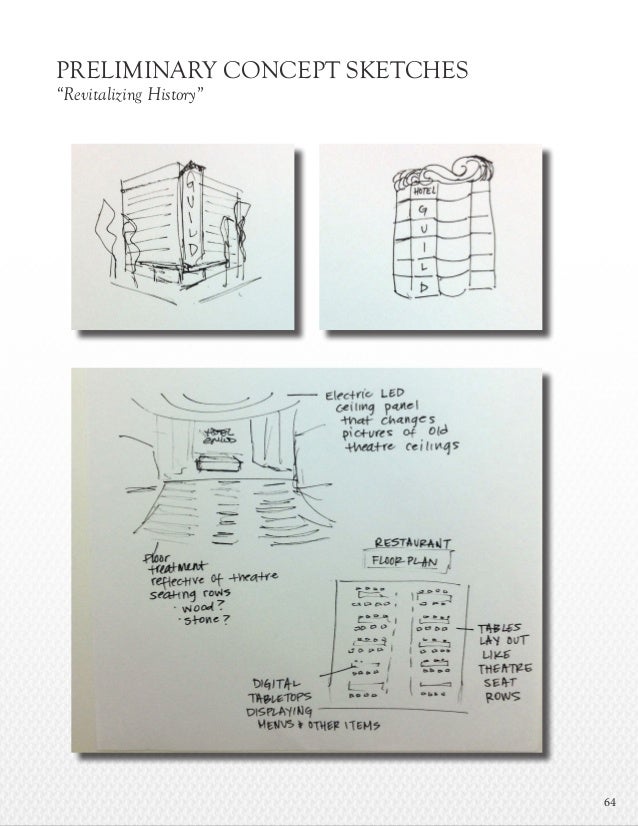 PRELIMINARY CONCEPT SKETCHES
“Revitalizing History”
GUILD
HOTEL
G
U
I
L
D
Electric LED
ceiling panel
that changes
pictures of old
theatre ceilings
HOTEL
GUILD
floor
treatment
reflective of theatre
seating rows
· wood?
· stone?
RESTAURANT
FLOOR PLAN
TABLES
LAY OUT
LIKE
THEATRE
SEAT
ROWS
DIGITAL
TABLETOPS
DISPLAYING
MENUS & OTHER ITEMS
64